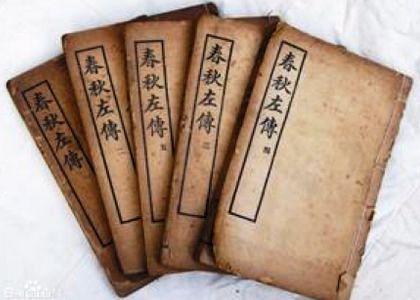 春秋左傳
春秋左傳
春秋左傳 五
春秋左傳
春秋左傳 四